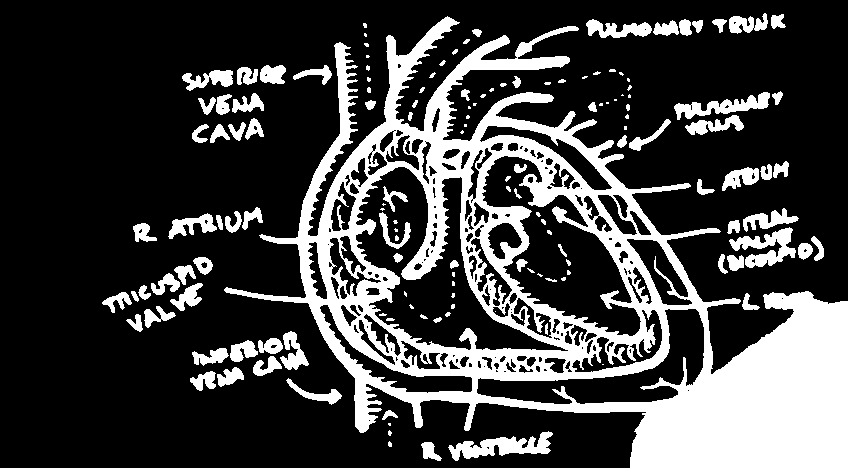 PULMONARY TRUNK
SUPERIOR
VENA
CAVA
PULMONARY
VEINS
L ATRIUM
R ATRIUM
MITRAL
VALVE
(BICUSPID)
TRICUSPID
VALVE
L
INFERIOR
VENA CAVA
R VENTRICLE